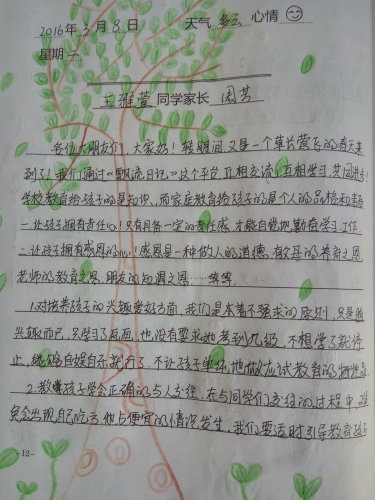 2016年3月8日 天气 多云 心情
星期二
王雅萱 同学家长 周芳
各位大朋友们，大家好！转眼间又是一个草长莺飞的春天来
到了！我们通过“飘流日记”这个平台，互相交流，互相学习，共同进步！
学校教育给孩子的是知识，而家庭教育给孩子的是个人的品格和
一.让孩子拥有责任心！只有具备一定的责任感，才能自觉地勤奋学习、工作.
二.让孩子拥有感恩的心！感恩是一种做人的道德，有父母的养育之恩，
老师的教育之恩，朋友的知遇之恩……等等.
1.对培养孩子的兴趣爱好方面，我们是本着不强求的原则，只是
兴趣而已，只学习了画画，也没有要求她考到几级，不想学了就停
止，能够自娱自乐就行了，不让孩子单纯地做应试教育的牺牲品
2.教育孩子学会正确的与人交往，在与同学们交往的过程中难
免会出现自己吃亏他占便宜的情况发生，我们要适时引导教育孩子
-12-